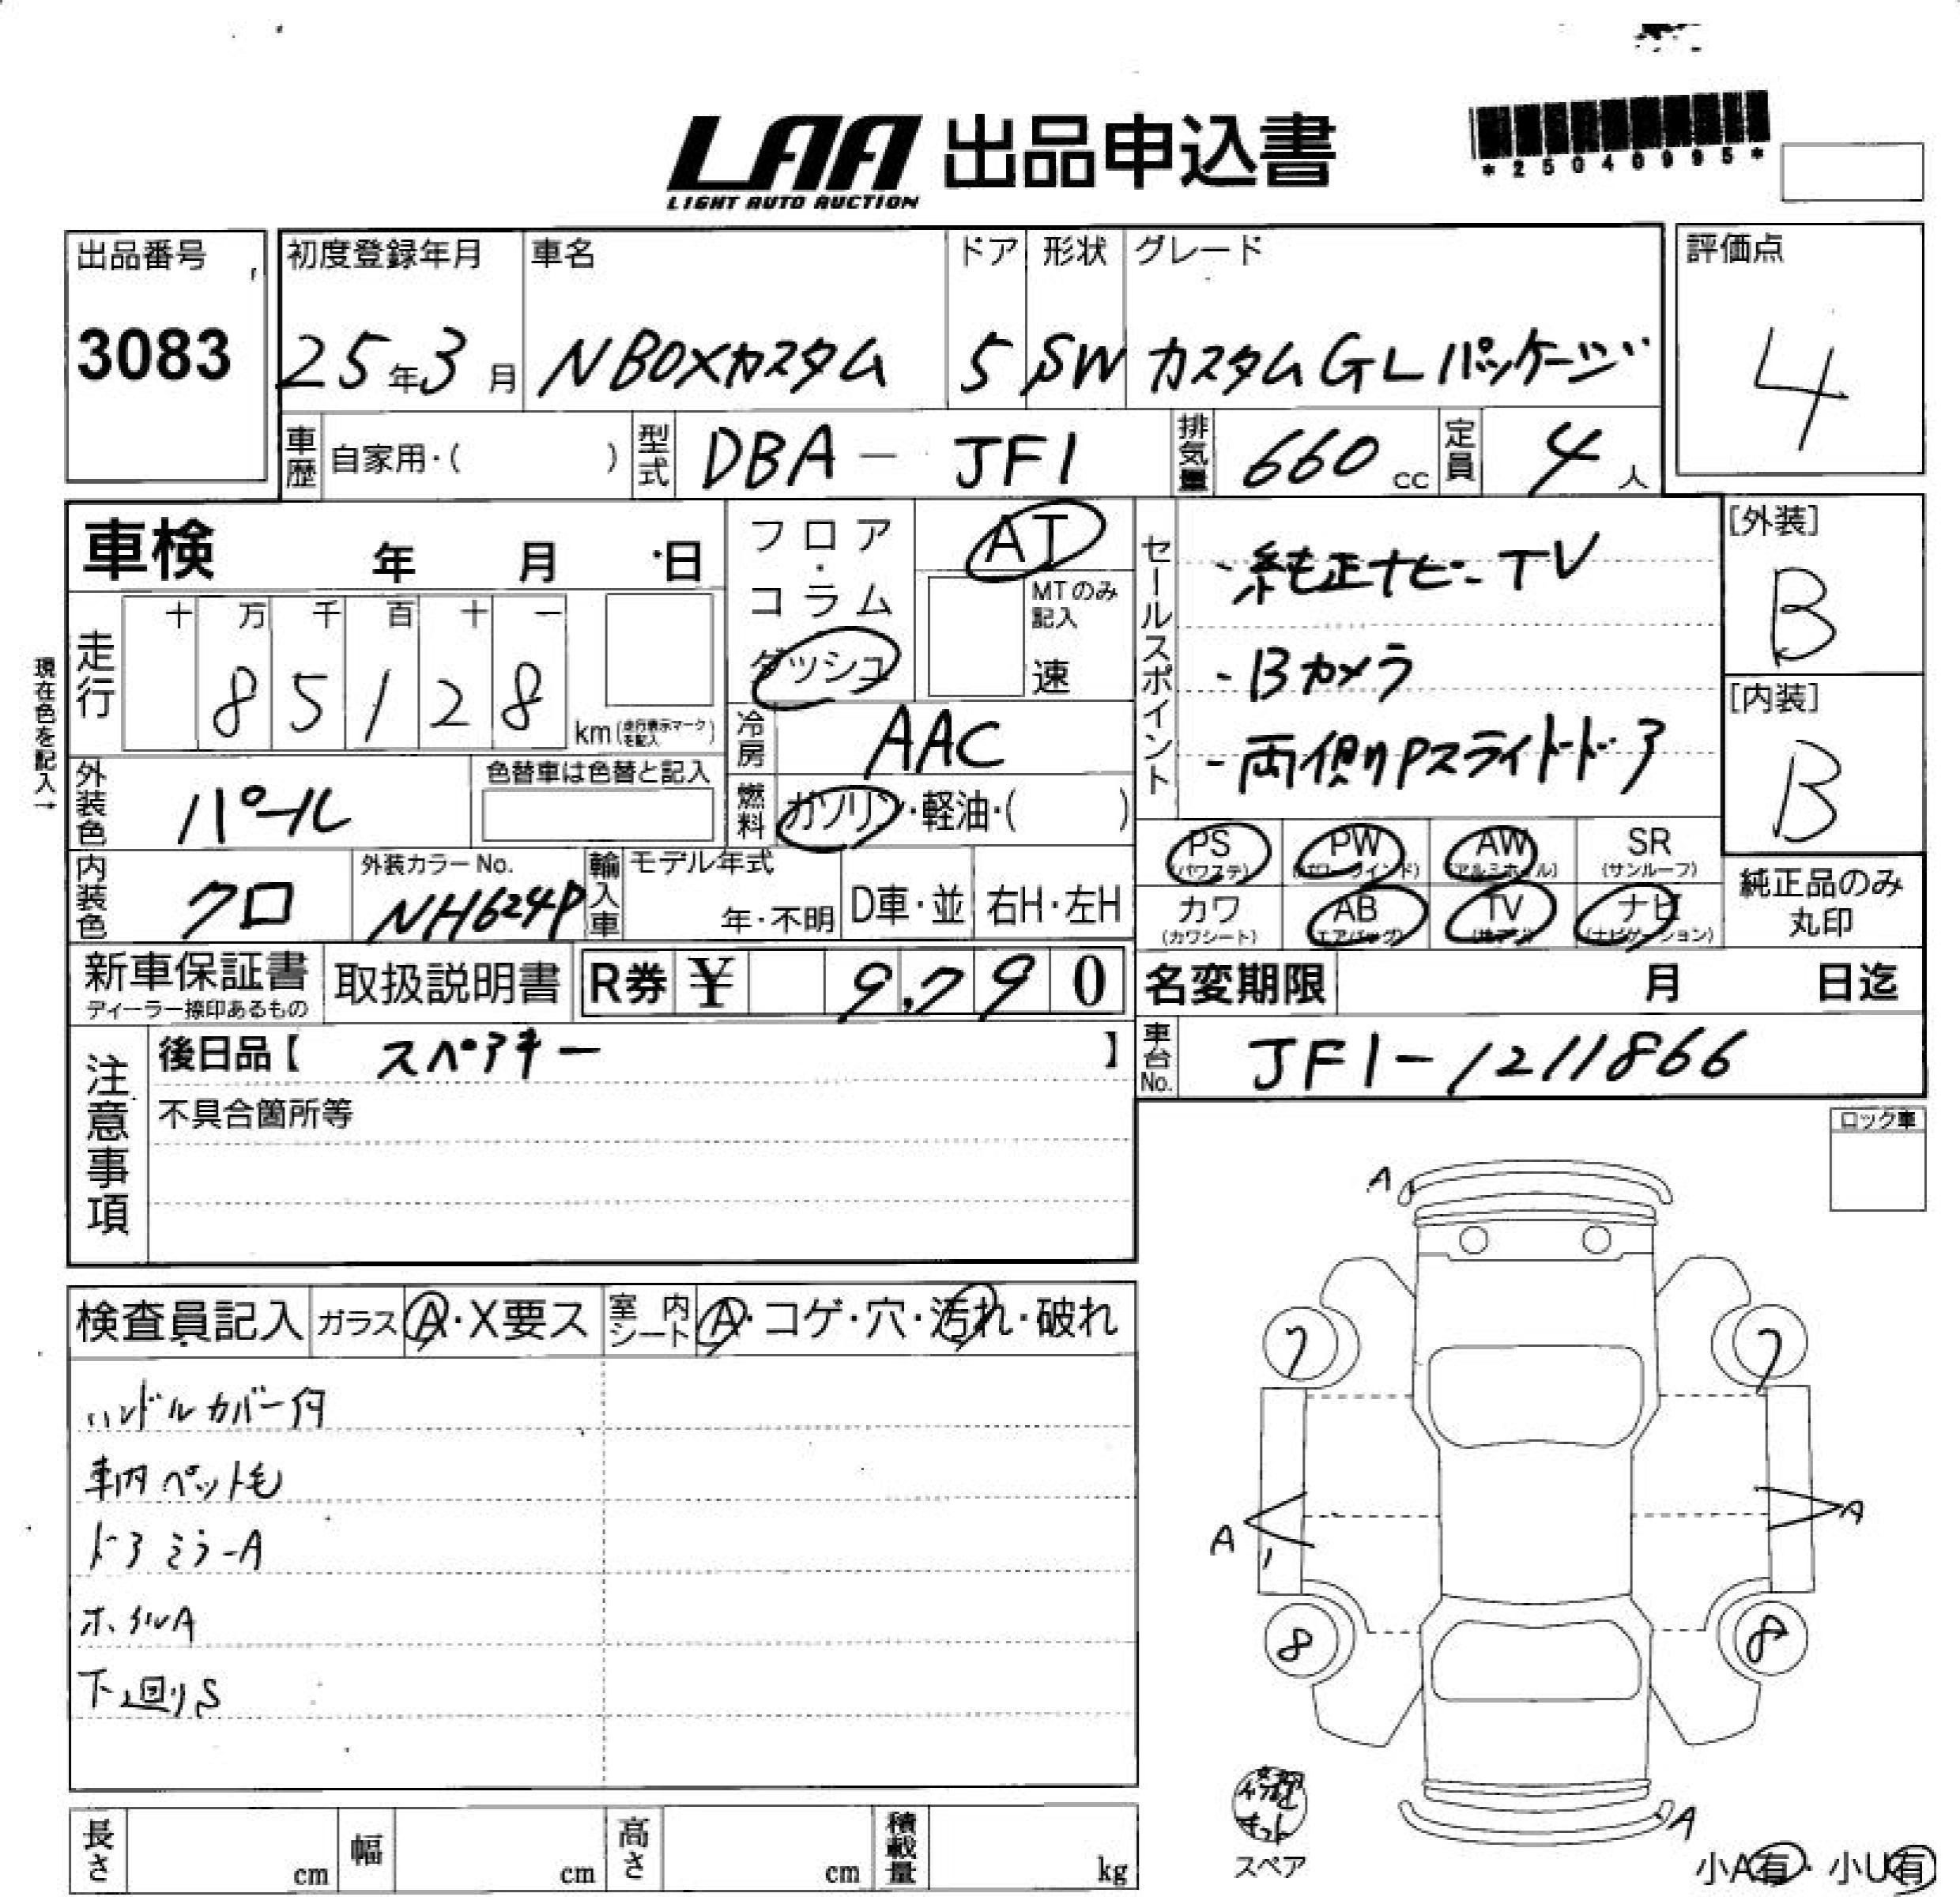 LAA 出品申込書
LIGHT AUTO AUCTION
*25040995*
出品番号
3083
初度登録年月 車名 ドア 形状 グレード
25年3月 NBOXカスタム 5 SW カスタムGLパッケージ
評価点
4
車歴 自家用・( ) 型式 DBA-JF1 排気量 660cc 定員 4人
車検 年 月 日
フロア・コラム ダッシュ
AT
MTのみ記入
速
セールスポイント
・純正ナビ-TV
-Bカメラ
-両側Pスライドドア
[外装]
B
[内装]
B
現在色を記入→
走行
十 万 千 百 十 一
8 5 1 2 8 km(走行表示マークを記入)
冷房 AAC
燃料 ガソリン・軽油・( )
外装色 パール 色替車は色替と記入
内装色 クロ 外装カラーNo. NH624P
輸入車 モデル年式 年・不明 D車・並 右H・左H
PS (パワステ) PW (パワーウインド) AW (アルミホイル) SR (サンルーフ)
カワ (カワシート) AB (エアバッグ) TV ナビ (ナビゲーション)
純正品のみ丸印
新車保証書 ディーラー捺印あるもの 取扱説明書 R券 ¥ 9,790
名変期限 月 日迄
車台No. JF1-1211866
注意事項
後日品【 スペアキー 】
不具合箇所等
ロック車
検査員記入 ガラス A・X要ス 室内シート A・コゲ・穴・汚れ・破れ
ハンドルカバー付
車内ペット毛
ドアミラーA
ホイルA
下廻りS
A
7 7
A A
8 8
A
修理キット
スペア
小A有・小U有
長さ cm 幅 cm 高さ cm 積載量 kg